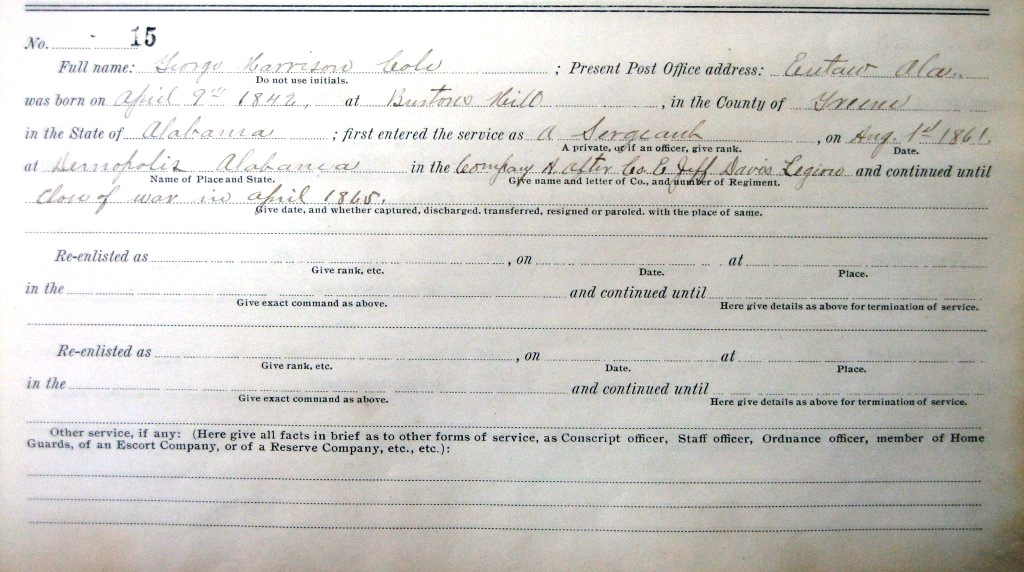 No. 15
Full name: George Harrison Cole ; Present Post Office address: Eutaw Ala.
Do not use initials.
was born on April 9th 1842, at Burtons Hill , in the County of Greene
in the State of Alabama ; first entered the service as A Sergeant , on Aug. 1st 1861.
A private, or if an officer, give rank. Date.
at Demopolis Alabama in the Company A after Co. E Jeff Davis Legion and continued until
Name of Place and State. Give name and letter of Co., and number of Regiment.
Close of war in April 1865.
Give date, and whether captured, discharged. transferred, resigned or paroled. with the place of same.
Re-enlisted as , on at
Give rank, etc. Date. Place.
in the and continued until
Give exact command as above. Here give details as above for termination of service.
Re-enlisted as , on at
Give rank, etc. Date. Place.
in the and continued until
Give exact command as above. Here give details as above for termination of service.
Other service, if any: (Here give all facts in brief as to other forms of service, as Conscript officer, Staff officer, Ordnance officer, member of Home
Guards, of an Escort Company, or of a Reserve Company, etc., etc.):